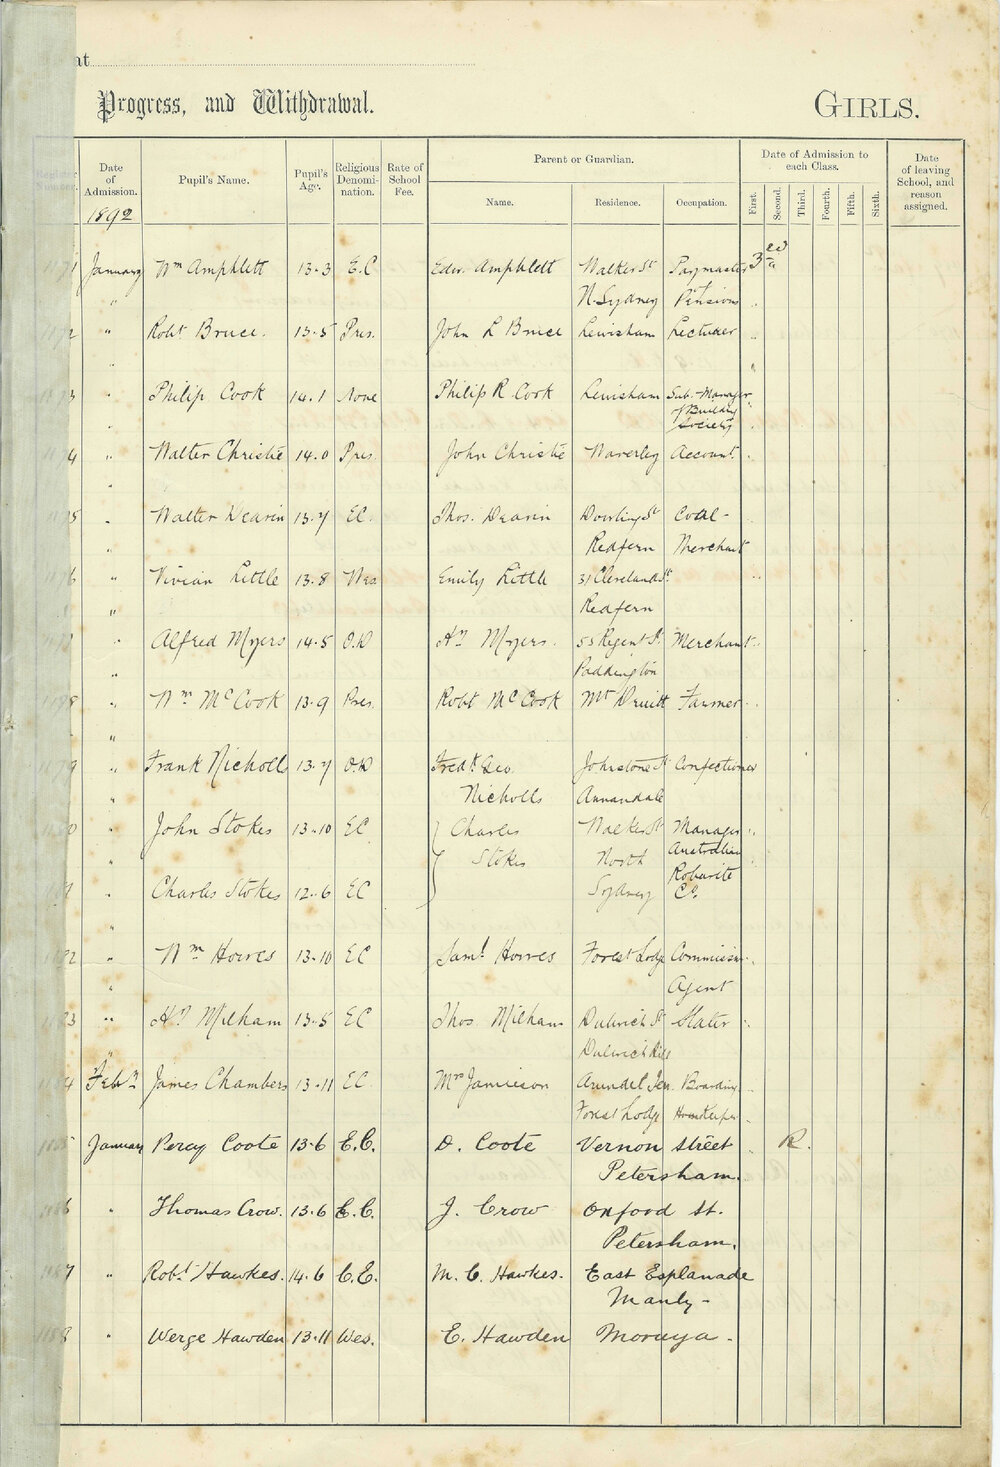 at
Progress, and Withdrawal. GIRLS.
Date of Admission. Pupil's Name. Pupil's Age. Religious Denomi- nation. Rate of School Fee. Parent or Guardian. Date of Admission to each Class. Date of leaving School, and reason assigned.
Name. Residence. Occupation. First. Second. Third. Fourth. Fifth. Sixth.
1892
January Wm Amphlett 13.3 E.C Edw. Amphlett Walker St Paymaster 3rd
" N. Sydney Pensions "
" Robt Bruce. 13.5 Pres. John L Bruce Lewisham Lecturer "
" Philip Cook 14.1 None Philip R Cook Lewisham Sub-Manager
of Building
" Society
" Walter Christie 14.0 Pres. John Christie Waverley Account.
" Walter Dearin 13.7 EC. Thos. Dearin Dowling St Coal-
" Redfern Merchant
" Vivian Little 13.8 Wes Emily Little 31 Cleveland St.
" Redfern
" Alfred Myers 14.5 O.D Hy Myers. 53 Regent St Merchant
" Paddington
" Wm McCook 13.9 Pres. Robt McCook Mt Druitt Farmer
" Frank Nicholls 13.7 O.D Fredk Geo. Johnstone St Confectioner
" Nicholls Annandale
" John Stokes 13.10 EC Charles Walker St Manager
" Stokes North Australian
Roburite
" Charles Stokes 12.6 EC Sydney Co.
" Wm Howes 13.10 EC Saml Howes Forest Lodge Commission
" Agent
" Hy Milham 13.5 EC Thos. Milham Dulwich St Slater
" Dulwich Hill
Feby James Chambers 13.11 EC Mrs Jamieson Arundel Ter. Boarding
Forest Lodge Housekeeper
1885 January Percy Coote 13.6 E.C. D. Coote Vernon Street R.
Petersham.
" Thomas Crow. 13.6 E.C. J. Crow Oxford St.
Petersham.
" Robt Hawkes. 14.6 C.E. M. C. Hawkes. East Esplanade
Manly-
1188 " Werge Hawden 13.11 Wes. E. Hawden Moruya.